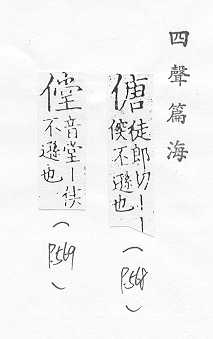 四聲篇海
傏
徒郎切丨丨
不遜也
(P.568)
音堂丨
不遜也
(P.569)